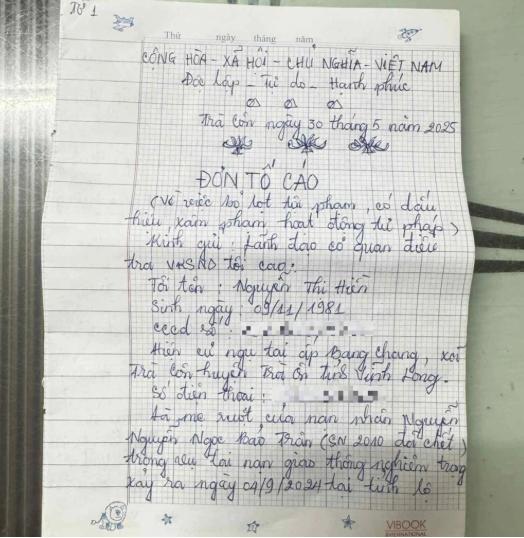 Tờ 1
Thứ ngày tháng năm
CỘNG HÒA - XÃ HỘI - CHỦ NGHĨA - VIỆT NAM
Độc lập - Tự do - Hạnh phúc
Trà Côn ngày 30 tháng 5 năm 2025
ĐƠN TỐ CÁO
(Về việc bỏ lọt tội phạm, có dấu
hiệu xâm phạm hoạt động tư pháp)
Kính gửi : Lãnh đạo cơ quan điều
tra VKSND tối cao.
Tôi tên : Nguyễn Thị Hiền
Sinh ngày : 09/11/1981
cccd số :
Hiện cư ngụ tại ấp Bang Chang, xã
Trà Côn huyện Trà Ôn tỉnh Vĩnh Long.
Số điện thoại :
Là mẹ ruột của nạn nhân Nguyễn
Nguyễn Ngọc Bảo Trân (SN 2010 đã chết)
trong vụ tai nạn giao thông nghiêm trọng
xảy ra ngày 04/9/2024 tại tỉnh lộ
VIBOOK
INTERNATIONAL